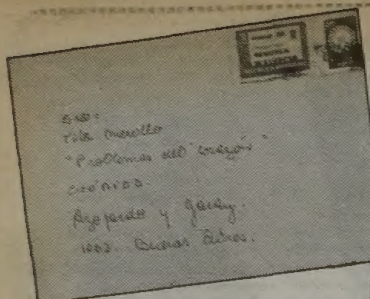 Tita Merello
"Problemas del corazón"
CRÓNICA
Azopardo y Garay.
1002. Buenos Aires.